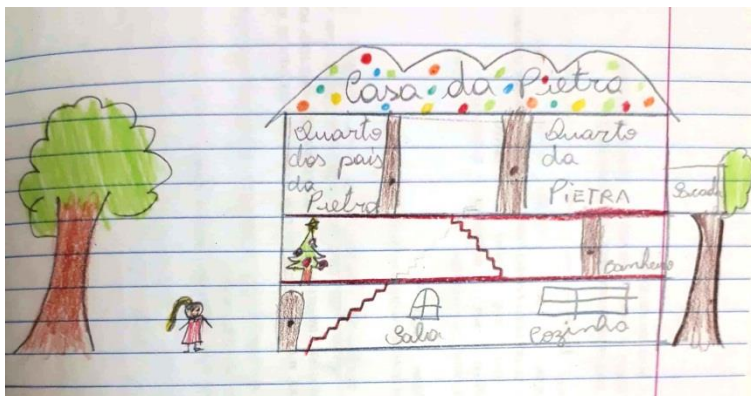 Casa da Pietra
Quarto
dos pais
da
Pietra
Quarto
da
PIETRA
Sacada
Banheiro
Sala
Cozinha